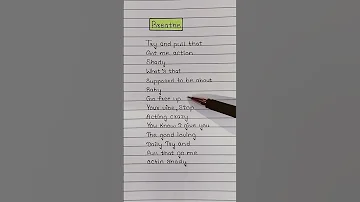 Breathe
Try and pull that
Got me action
Shady
What's that
Supposed to be about
Baby
Go free up
Your vibe, Stop
Acting crazy
You know I give you
The good loving
Daily Try and
Pull that on me
actin shady